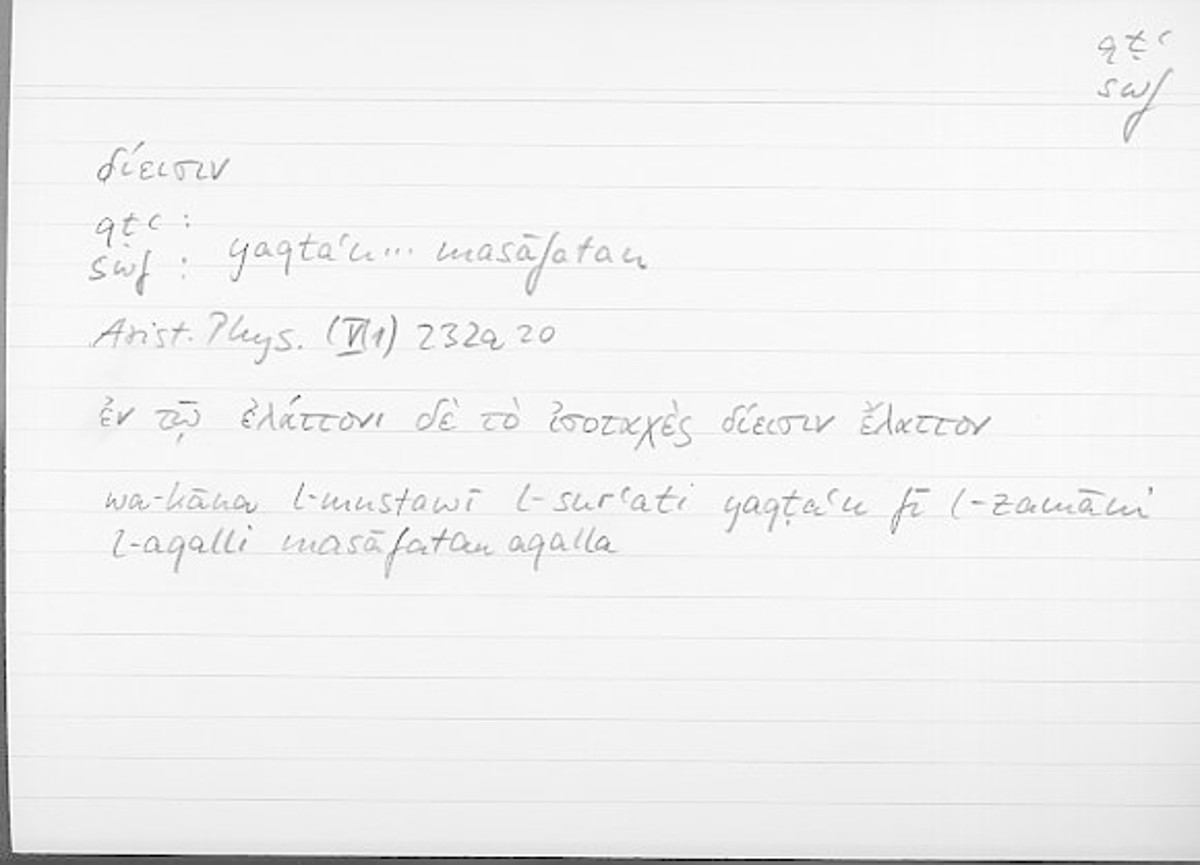 qṭʿ
swf
δίεισιν
qṭʿ :
swf : yaqtaʿu... masāfatan
Arist. Phys. (VI 1) 232a20
ἐν τῷ ἐλάττονι δὲ τὸ ἰσοταχὲς δίεισιν ἔλαττον
wa-kāna l-mustawī l-surʿati yaqṭaʿu fī l-zamāni
l-aqalli masāfatan aqalla